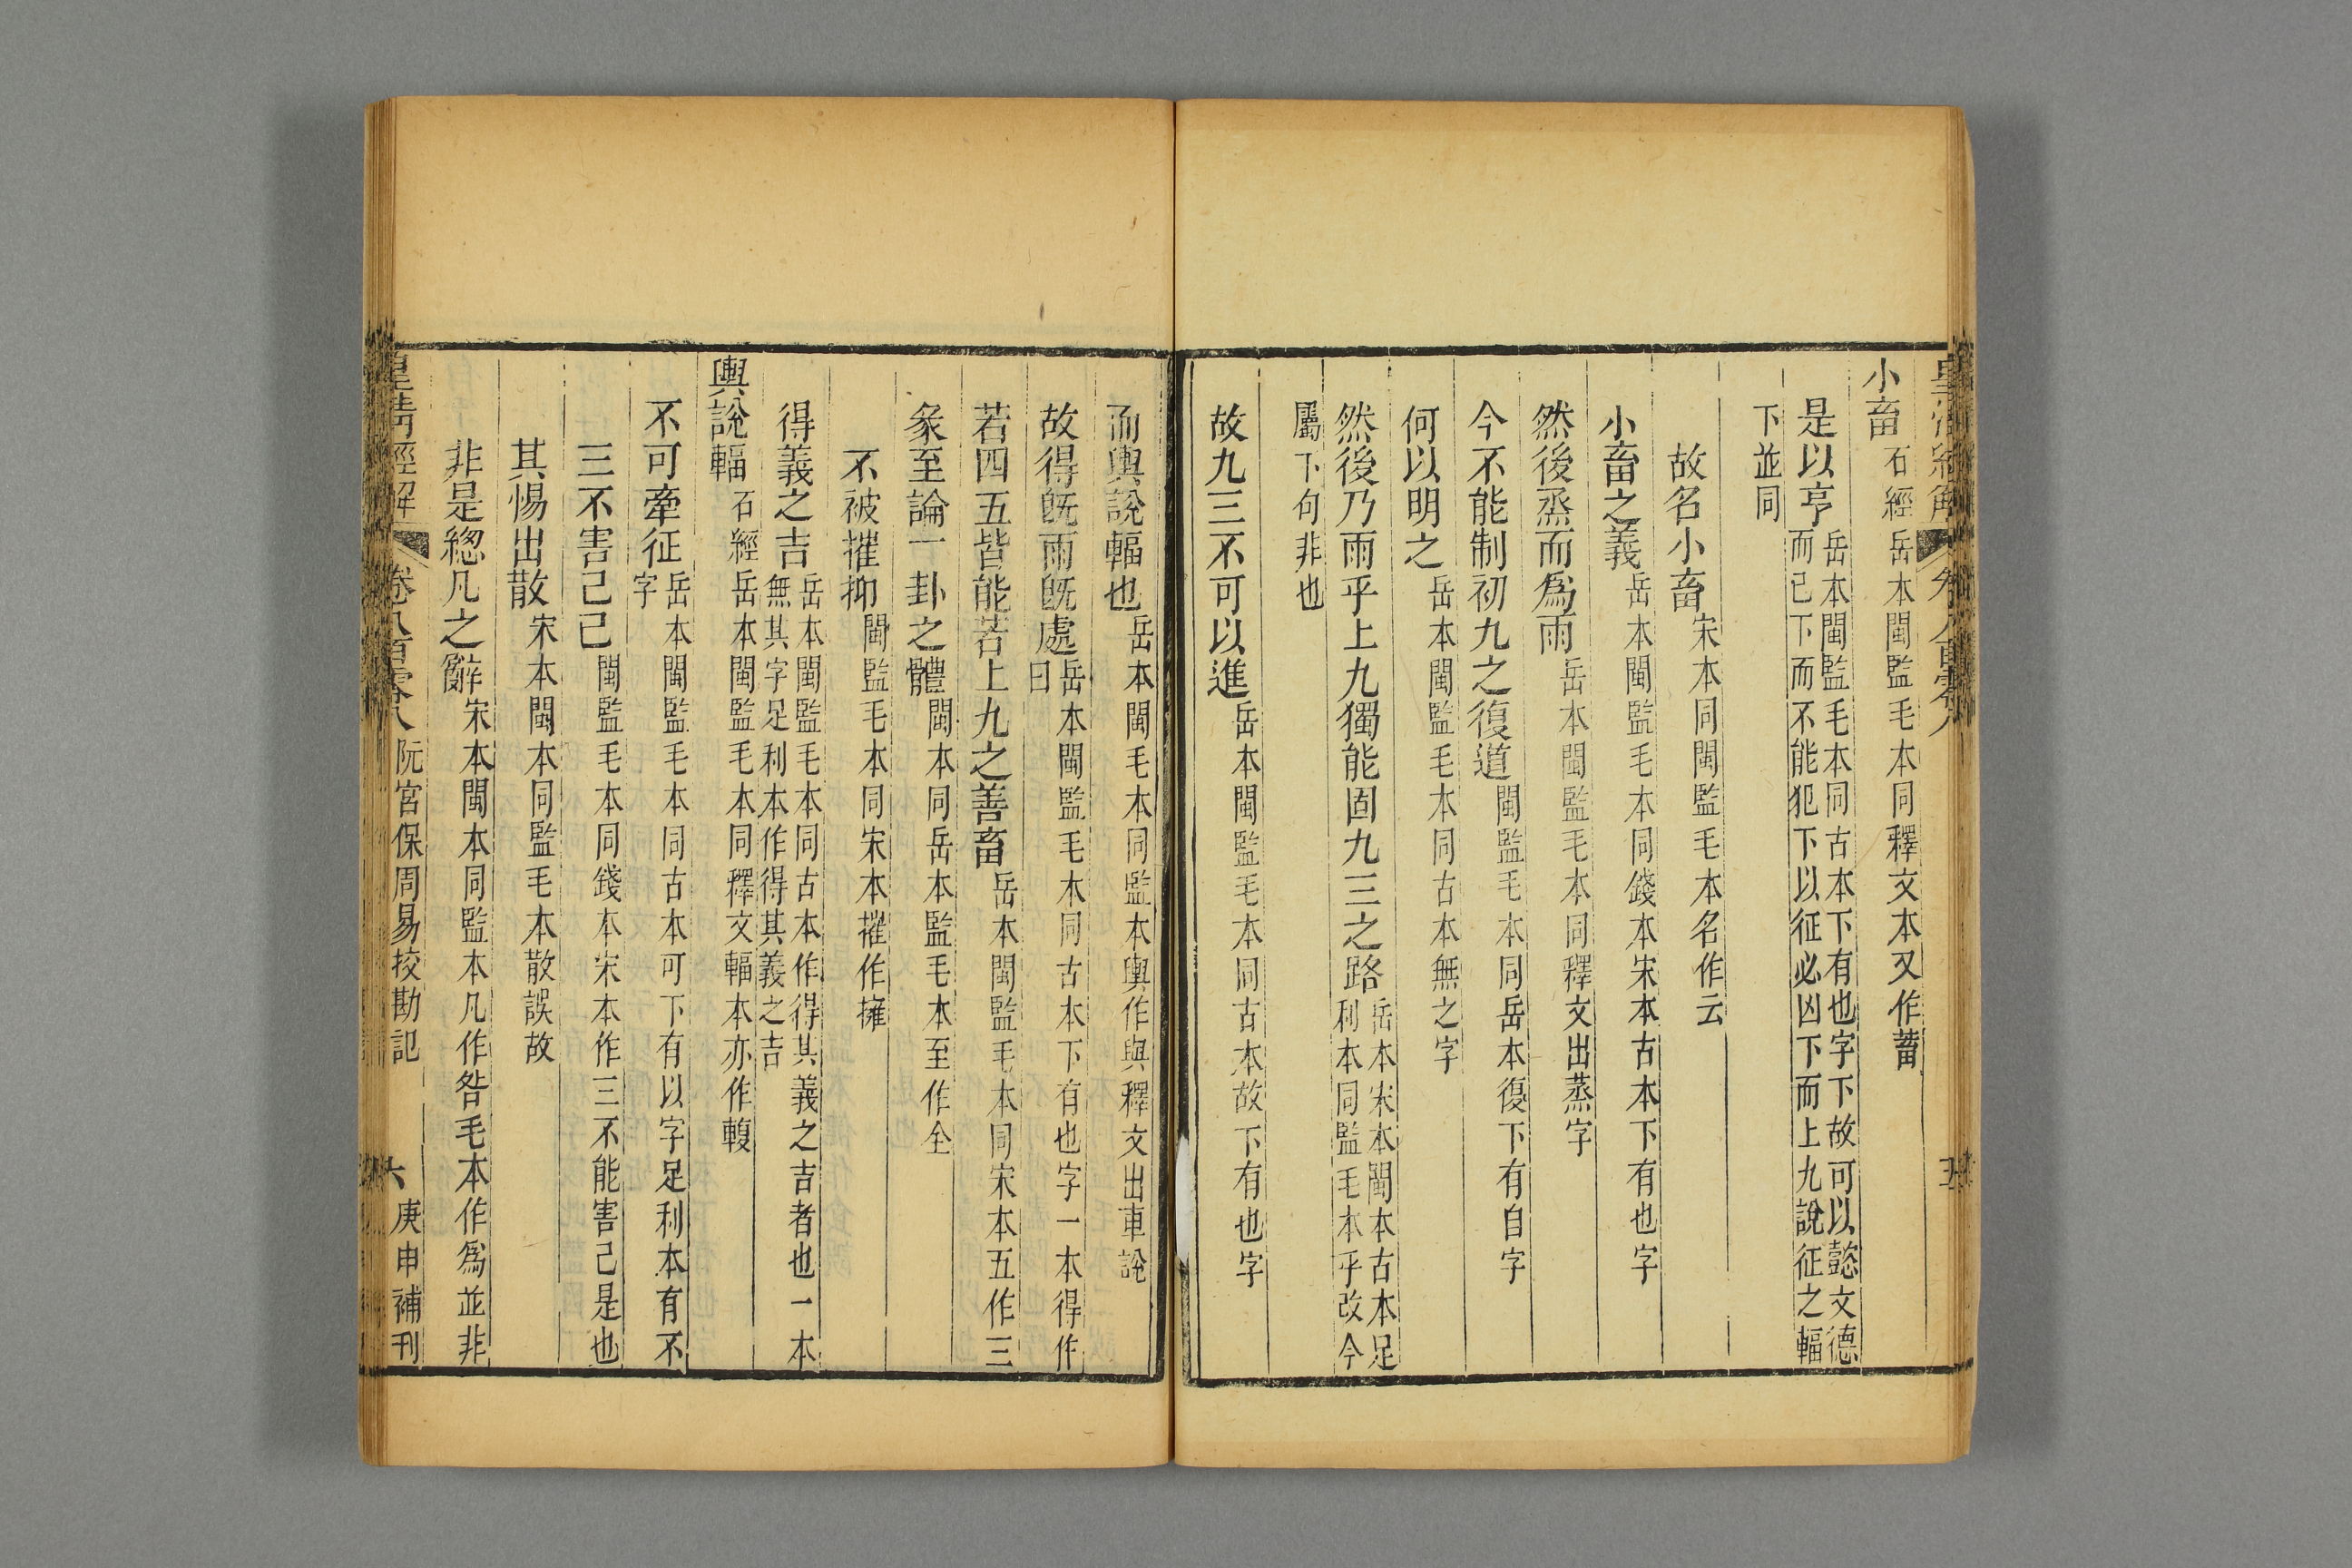 皇清經解 卷八百零八 五
小畜石經岳本閩監毛本同釋文本又作蓄
是以亨岳本閩監毛本同古本下有也字下故可以懿文德
而已下而不能犯下以征必凶下而上九說征之輻
下並同
故名小畜宋本同閩監毛本名作云
小畜之義岳本閩監毛本同錢本宋本古本下有也字
然後烝而爲雨岳本閩監毛本同釋文出蒸字
今不能制初九之復道閩監毛本同岳本復下有自字
何以明之岳本閩監毛本同古本無之字
然後乃雨乎上九獨能固九三之路岳本宋本閩本古本足
利本同監毛本乎改今
屬下句非也
故九三不可以進岳本閩監毛本同古本故下有也字
而輿說輻也岳本閩毛本同監本輿作與釋文出車說
故得旣雨旣處岳本閩監毛本同古本下有也字一本得作
曰
若四五皆能若上九之善畜岳本閩監毛本同宋本五作三
彖至論一卦之體閩本同岳本監毛本至作全
不被摧抑閩監毛本同宋本摧作擁
得義之吉岳本閩監毛本同古本作得其義之吉者也一本
無其字足利本作得其義之吉
輿說輻石經岳本閩監毛本同釋文輻本亦作輹
不可牽征岳本閩監毛本同古本可下有以字足利本有不
字
三不害己己閩監毛本同錢本宋本作三不能害己是也
其惕出散宋本閩本同監毛本散誤故
非是總凡之辭宋本閩本同監本凡作咎毛本作爲並非
皇清經解 卷八百零八 阮宮保周易挍勘記 六 庚申補刊